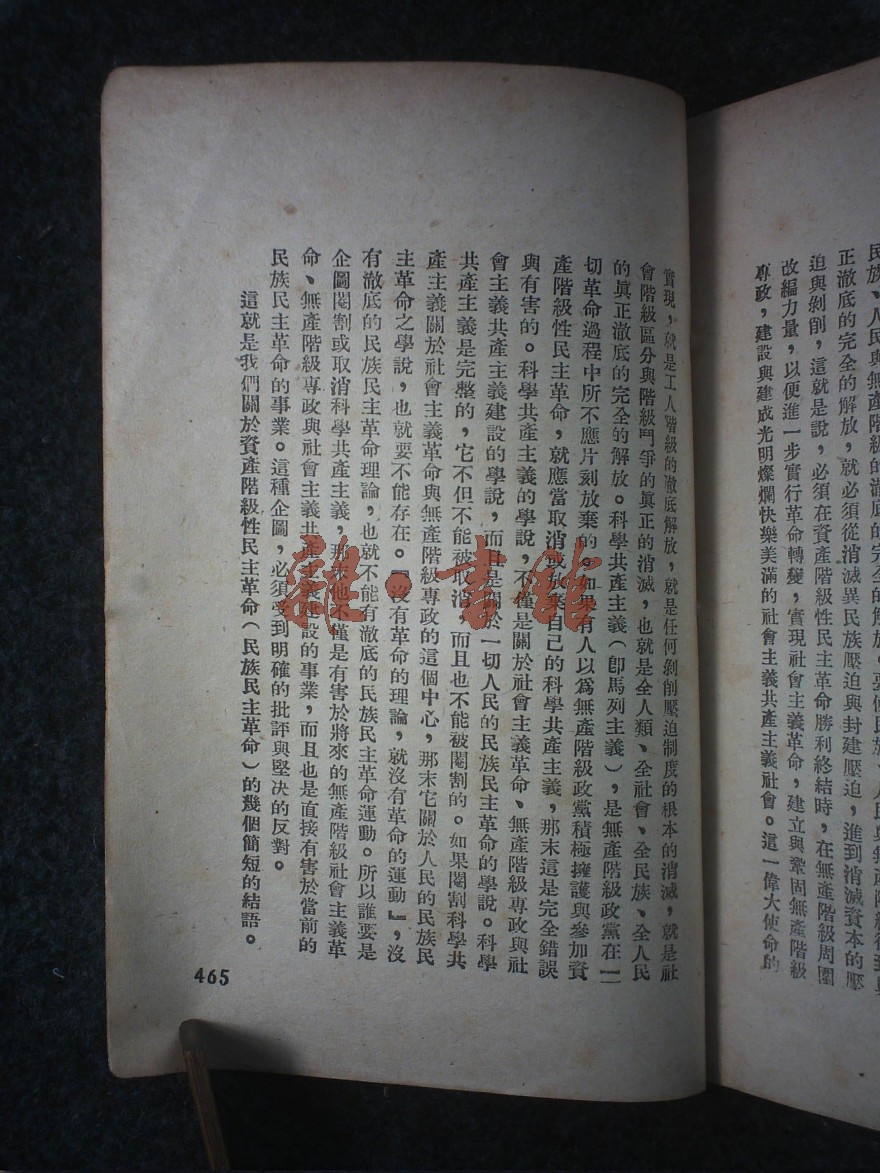 民族、人民與無產階級的澈底的完全的解放。要使民族、人民與無產階級得到真
正澈底的完全的解放，就必須從消滅異民族壓迫與封建壓迫，進到消滅資本的壓
迫與剝削，這就是說，必須在資產階級性民主革命勝利終結時，在無產階級周圍
改編力量，以便進一步實行革命轉變，實現社會主義革命，建立與鞏固無產階級
專政，建設與建成光明燦爛快樂美滿的社會主義共產主義社會。這一偉大使命的
實現，就是工人階級的澈底解放，就是任何剝削壓迫制度的根本的消滅，就是社
會階級區分與階級鬥爭的眞正的消滅，也就是全人類、全社會、全民族、全人民
的眞正澈底的完全的解放。科學共產主義（卽馬列主義），是無產階級政黨在一
切革命過程中所不應片刻放棄的。如果有人以爲無產階級政黨積極擁護與參加資
產階級性民主革命，就應當取消或放棄自己的科學共產主義，那末這是完全錯誤
與有害的。科學共產主義的學說，不僅是關於社會主義革命、無產階級專政與社
會主義共產主義建設的學說，而且是關於一切人民的民族民主革命的學說。科學
共產主義是完整的，它不但不能被取消，而且也不能被閹割的。如果閹割科學共
產主義關於社會主義革命與無產階級專政的這個中心，那末它關於人民的民族民
主革命之學說，也就要不能存在。『沒有革命的理論，就沒有革命的運動』，沒
有澈底的民族民主革命理論，也就不能有澈底的民族民主革命運動。所以誰要是
企圖閹割或取消科學共產主義，那末他不僅是有害於將來的無產階級社會主義革
命、無產階級專政與社會主義共產主義建設的事業，而且也是直接有害於當前的
民族民主革命的事業。這種企圖，必須受到明確的批評與堅決的反對。
這就是我們關於資產階級性民主革命（民族民主革命）的幾個簡短的結語。
465
雜·書館